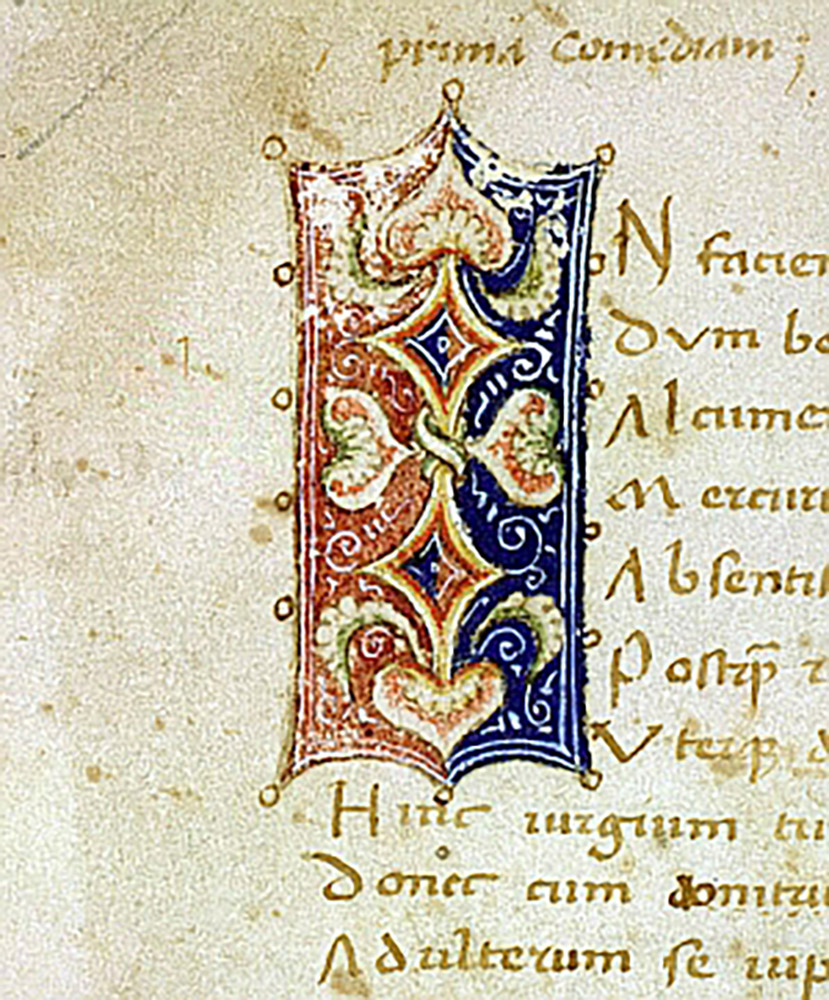 primā comediam;
IN facien
Dvm be
Alcume
Mercuri
Absentis
Postqᷓ
Vterqꝫ d
Hinc iurgium tu
Donec cum tonitru
Adulterum se iup